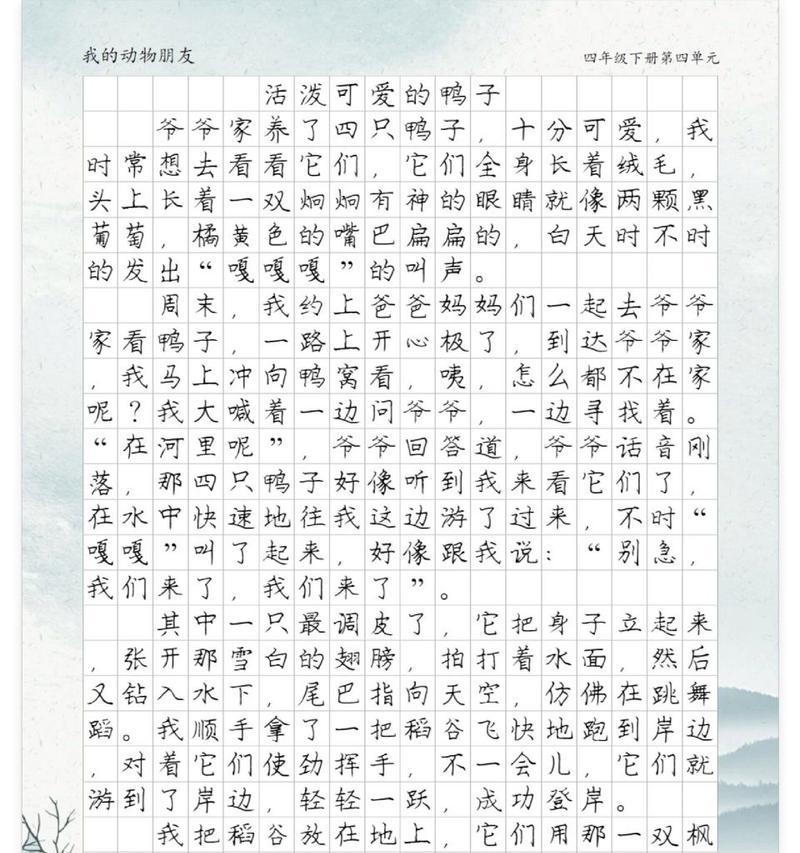 我的动物朋友
四年级下册第四单元
活泼可爱的鸭子
爷爷家养了四只鸭子，十分可爱，我
时常想去看看它们，它们全身长着绒毛，
头上长着一双炯炯有神的眼睛就像两颗黑
葡萄，橘黄色的嘴巴扁扁的，白天时不时
的发出“嘎嘎嘎”的叫声。
周末，我约上爸爸妈妈们一起去爷爷
家看鸭子，一路上开心极了，到达爷爷家
，我马上冲向鸭窝看，咦，怎么都不在家
呢？我大喊着一边问爷爷，一边寻找着。
“在河里呢”，爷爷回答道，爷爷话音刚
落，那四只鸭子好像听到我来看它们了，
在水中快速地往我这边游了过来，不时“
嘎嘎”叫了起来，好像跟我说：“别急，
我们来了，我们来了”。
其中一只最调皮了，它把身子立起来
，张开那雪白的翅膀，拍打着水面，然后
又钻入水下，尾巴指向天空，仿佛在跳舞
蹈。我顺手拿了一把稻谷飞快地跑到岸边
，对着它们使劲挥手，不一会儿，它们就
游到了岸边，轻轻一跃，成功登岸。
我把稻谷放在地上，它们用那一双枫